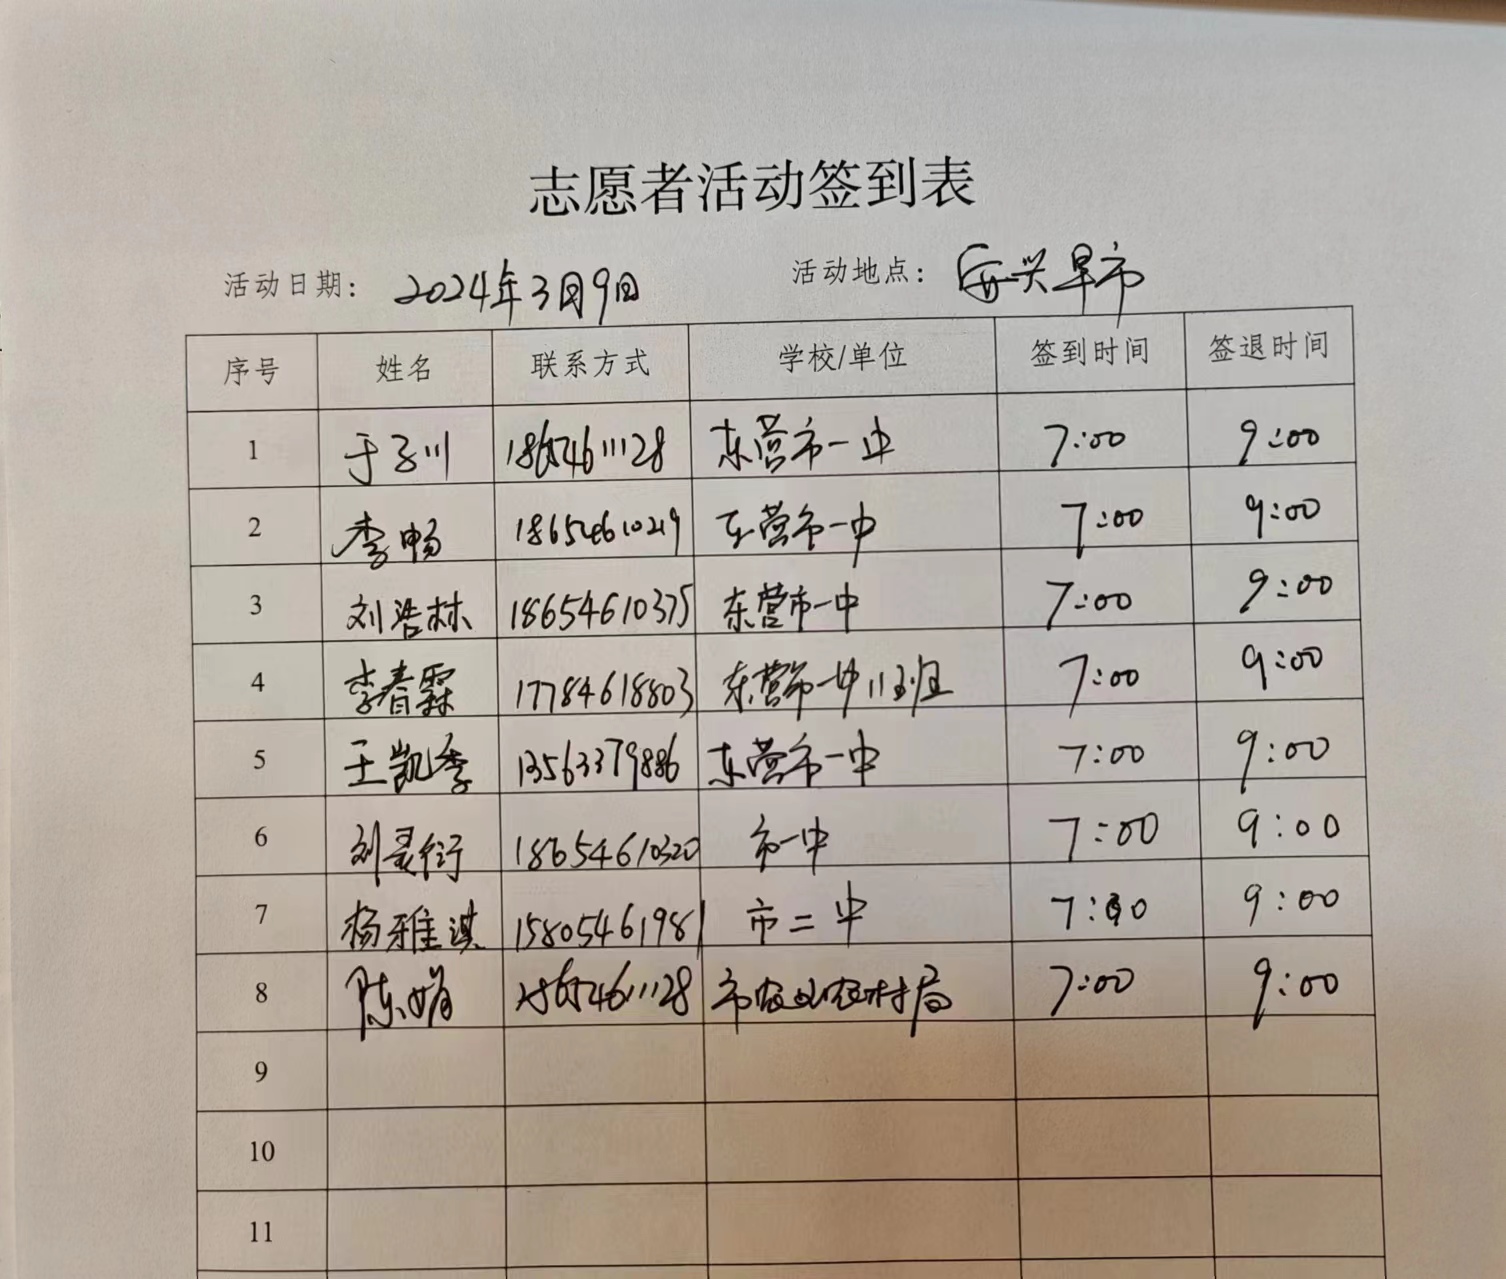 志愿者活动签到表
活动日期: 2024年3月9日 活动地点: 安兴早市
序号 姓名 联系方式 学校/单位 签到时间 签退时间
1 于子川 18654611128 东营市一中 7:00 9:00
2 李畅 18654610219 东营市一中 7:00 9:00
3 刘浩林 18654610375 东营市一中 7:00 9:00
4 李春霖 17784618803 东营市一中11班 7:00 9:00
5 王凯季 13563379886 东营市一中 7:00 9:00
6 刘灵衍 18654610320 市一中 7:00 9:00
7 杨雅淇 15805461981 市二中 7:00 9:00
8 陈娟 18654611128 市农业农村局 7:00 9:00
9
10
11